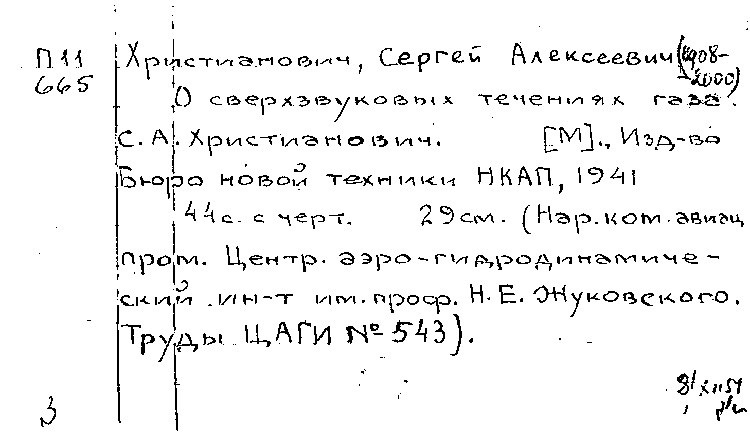 П11 Христианович, Сергей Алексеевич (1908-
665 2000)
О сверхзвуковых течениях газа.
С. А. Христианович. [М]., Изд-во
Бюро новой техники НКАП, 1941
44с. с черт. 29см. (Нар.ком.авиац
пром. Центр. аэро-гидродинамиче-
ский ин-т им.проф. Н. Е. Жуковского.
Труды ЦАГИ № 543).
8/XII51
З